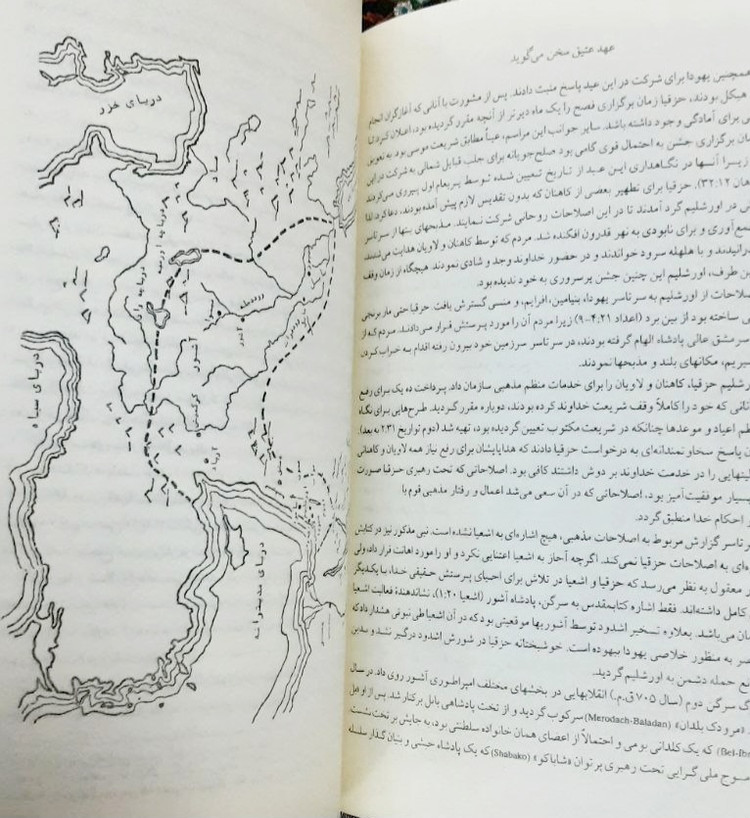 عهد عتیق سخن می‌گوید
همچنین یهودا برای شرکت در این عید پاسخ مثبت دادند. پس از مشورت با آنانی که آغازگران انجام
هیکل بودند، حزقیا زمان برگزاری فصح را یک ماه دیرتر از آنچه مقرر گردیده بود، اعلان کرد تا
برای آمادگی وجود داشته باشد. سایر جوانب این مراسم، عیناً مطابق شریعت موسی بود. به تعویق
برگزاری جشن به احتمال قوی گامی بود صلح‌جویانه برای جلب قبایل شمالی به شرکت در این
زیرا آنها در نگاهداری این عید از تاریخ تعیین شده توسط یربعام اول پیروی می‌کردند
۳۲:۱۲). حزقیا برای تطهیر بعضی از کاهنان که بدون تقدیس لازم پیش آمده بودند، دعا کرد. لذا
در اورشلیم گرد آمدند تا در این اصلاحات روحانی شرکت نمایند. مذبحهای بتها از سرتاسر
جمع‌آوری و برای نابودی به نهر قدرون افکنده شد. مردم که توسط کاهنان و لاویان هدایت می‌شدند،
و با هلهله سرود خواندند و در حضور خداوند وجد و شادی نمودند. هیچگاه از زمان وقف
این طرف، اورشلیم این چنین جشن پرسروری به خود ندیده بود.
اصلاحات از اورشلیم به سرتاسر یهودا، بنیامین، افرایم، و منسی گسترش یافت. حزقیا حتی مار برنجی
ساخته بود از بین برد (اعداد ۴:۲۱-۹) زیرا مردم آن را مورد پرستش قرار می‌دادند. مردم که از
سرمشق عالی پادشاه الهام گرفته بودند، در سرتاسر سرزمین خود بیرون رفته اقدام به خراب کردن
مکانهای بلند و مذبحها نمودند.
حزقیا، کاهنان و لاویان را برای خدمات منظم مذهبی سازمان داد. پرداخت ده یک برای رفع
که خود را کاملاً وقف شریعت خداوند کرده بودند، دوباره مقرر گردید. طرح‌هایی برای نگاه
اعیاد و موعدها چنانکه در شریعت مکتوب تعیین گردیده بود، تهیه شد (دوم تواریخ ۲:۳۱ به بعد).
پاسخ سخاوتمندانه‌ای به درخواست حزقیا دادند که هدایایشان برای رفع نیاز همه لاویان و کاهنانی
را در خدمت خداوند بر دوش داشتند کافی بود. اصلاحاتی که تحت رهبری حزقیا صورت
بسیار موفقیت‌آمیز بود، اصلاحاتی که در آن سعی می‌شد اعمال و رفتار مذهبی قوم با
احکام خدا منطبق گردد.
سرتاسر گزارش مربوط به اصلاحات مذهبی، هیچ اشاره‌ای به اشعیا نشده است. نبی مذکور نیز در کتابش
به اصلاحات حزقیا نمی‌کند. اگرچه آحاز به اشعیا اعتنایی نکرد و او را مورد اهانت قرار داد، ولی
معقول به نظر می‌رسد که حزقیا و اشعیا در تلاش برای احیای پرستش حقیقی خدا، با یکدیگر
کامل داشته‌اند. فقط اشاره کتابمقدس به سرگن، پادشاه آشور (اشعیا ۱:۲۰)، نشاندهندهٔ فعالیت اشعیا
می‌باشد. بعلاوه تسخیر اشدود توسط آشوریها موقعیتی بود که در آن اشعیا طی نبوتی هشدار داد که
به منظور خلاصی یهودا بیهوده است. خوشبختانه حزقیا در شورش اشدود درگیر نشد و بدین
حمله دشمن به اورشلیم گردید.
سرگن دوم (سال ۷۰۵ ق.م.) انقلابهایی در بخشهای مختلف امپراطوری آشور روی داد. در سال
«مرودک بلدان» (Merodach-Baladan) سرکوب گردید و از تخت پادشاهی بابل برکنار شد. پس از او بل
(Bel-Ib که یک کلدانی بومی و احتمالاً از اعضای همان خانواده سلطنتی بود، به جایش بر تخت نشست.
موج ملی گرایی تحت رهبری پرتوان «شاباکو» (Shabako) که یک پادشاه حبشی و بنیان گذار سلسله
دریای خزر
دریاچه ارومیه
دریاچه وان
آشور
دریای سیاه
دریای مدیترانه